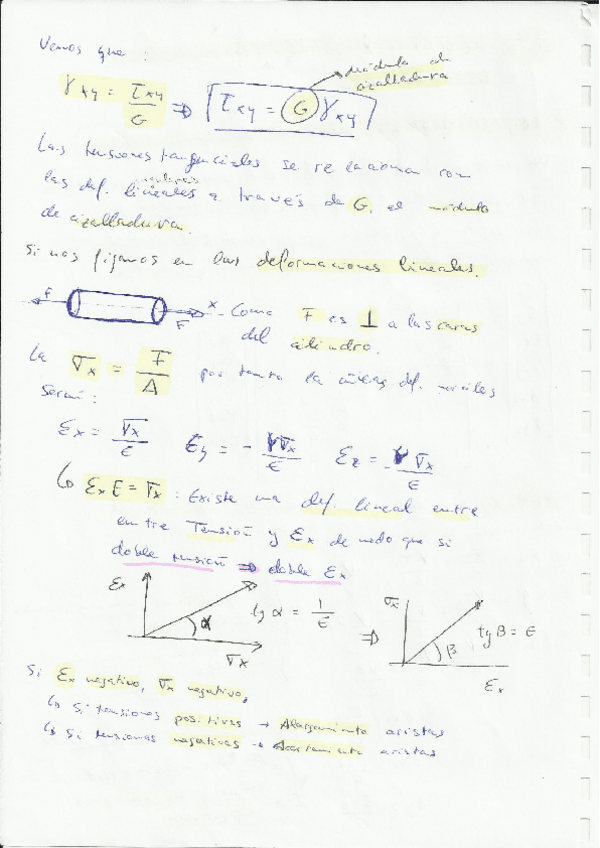 Vemos que :
módulo de
cizalladura
γxy = τxy / G ⇒ τxy = G γxy
Las tensiones tangenciales se relacionan con
angulares
las def. lineales a través de G, el módulo
de cizalladura.
Si nos fijamos en las deformaciones lineales.
F F x
Como F es ⊥ a las caras
del cilindro.
La σx = F / A por tanto la
serán :
εx = σx / E εy = - ν σx / E εz = - ν σx / E
↳ εx E = σx : Existe una def. lineal entre
entre Tensión y εx de modo que si
doble tensión ⇒ doble εx
εx α σx tg α = 1 / E ⇒ σx β εx tg β = E
Si εx negativo, σx negativo,
↳ Si tensiones positivas → Alargamiento aristas
↳ Si tensiones negativas → Acortamiento aristas